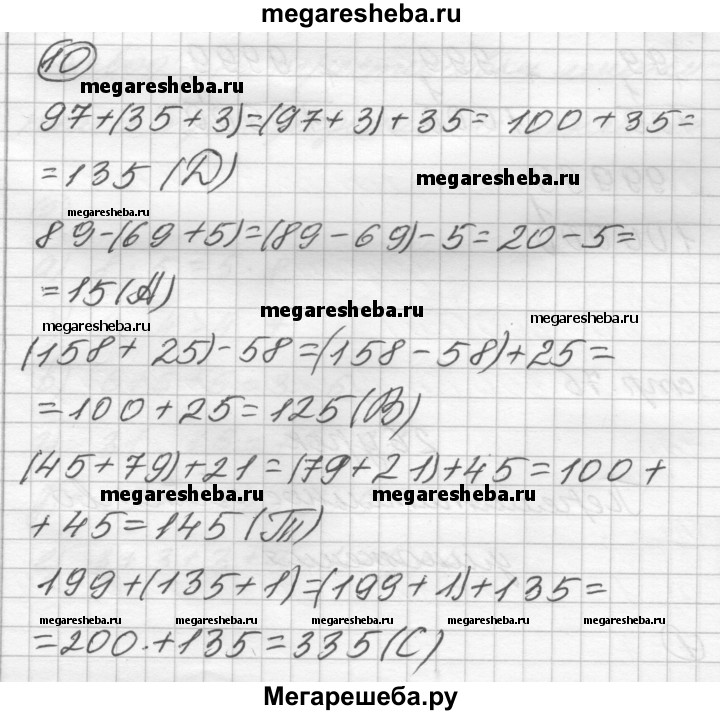 megaresheba.ru
10
megaresheba.ru
97+(35+3)=(97+3)+35= 100+35=
=135 (Д)
megaresheba.ru
megaresheba.ru
89-(69+5)=(89-69)-5=20-5=
=15(А)
megaresheba.ru
megaresheba.ru
megaresheba.ru
(158+ 25)-58=(158-58)+25=
=100+25=125(В)
(45+79)+21=(79+21)+45=100+
megaresheba.ru
megaresheba.ru
+45=145(Т)
199+(135+1)=(199+1)+135=
megaresheba.ru megaresheba.ru megaresheba.ru megaresheba.ru megaresheba.ru
=200.+135=335(С)
Мегарешеба.ру